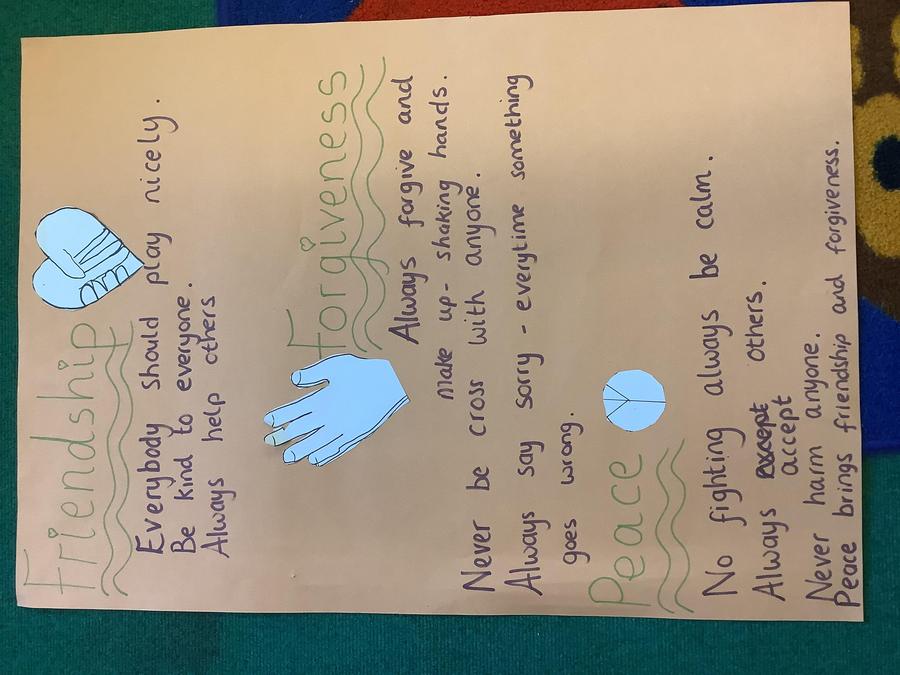 Friendship
Everybody should play nicely.
Be kind to everyone.
Always help others
Forgiveness
Always forgive and
make up - shaking hands.
Never be cross with anyone.
Always say sorry - everytime something
goes wrong.
Peace
No fighting always be calm.
Always except others.
accept
Never harm anyone.
Peace brings friendship and forgiveness.